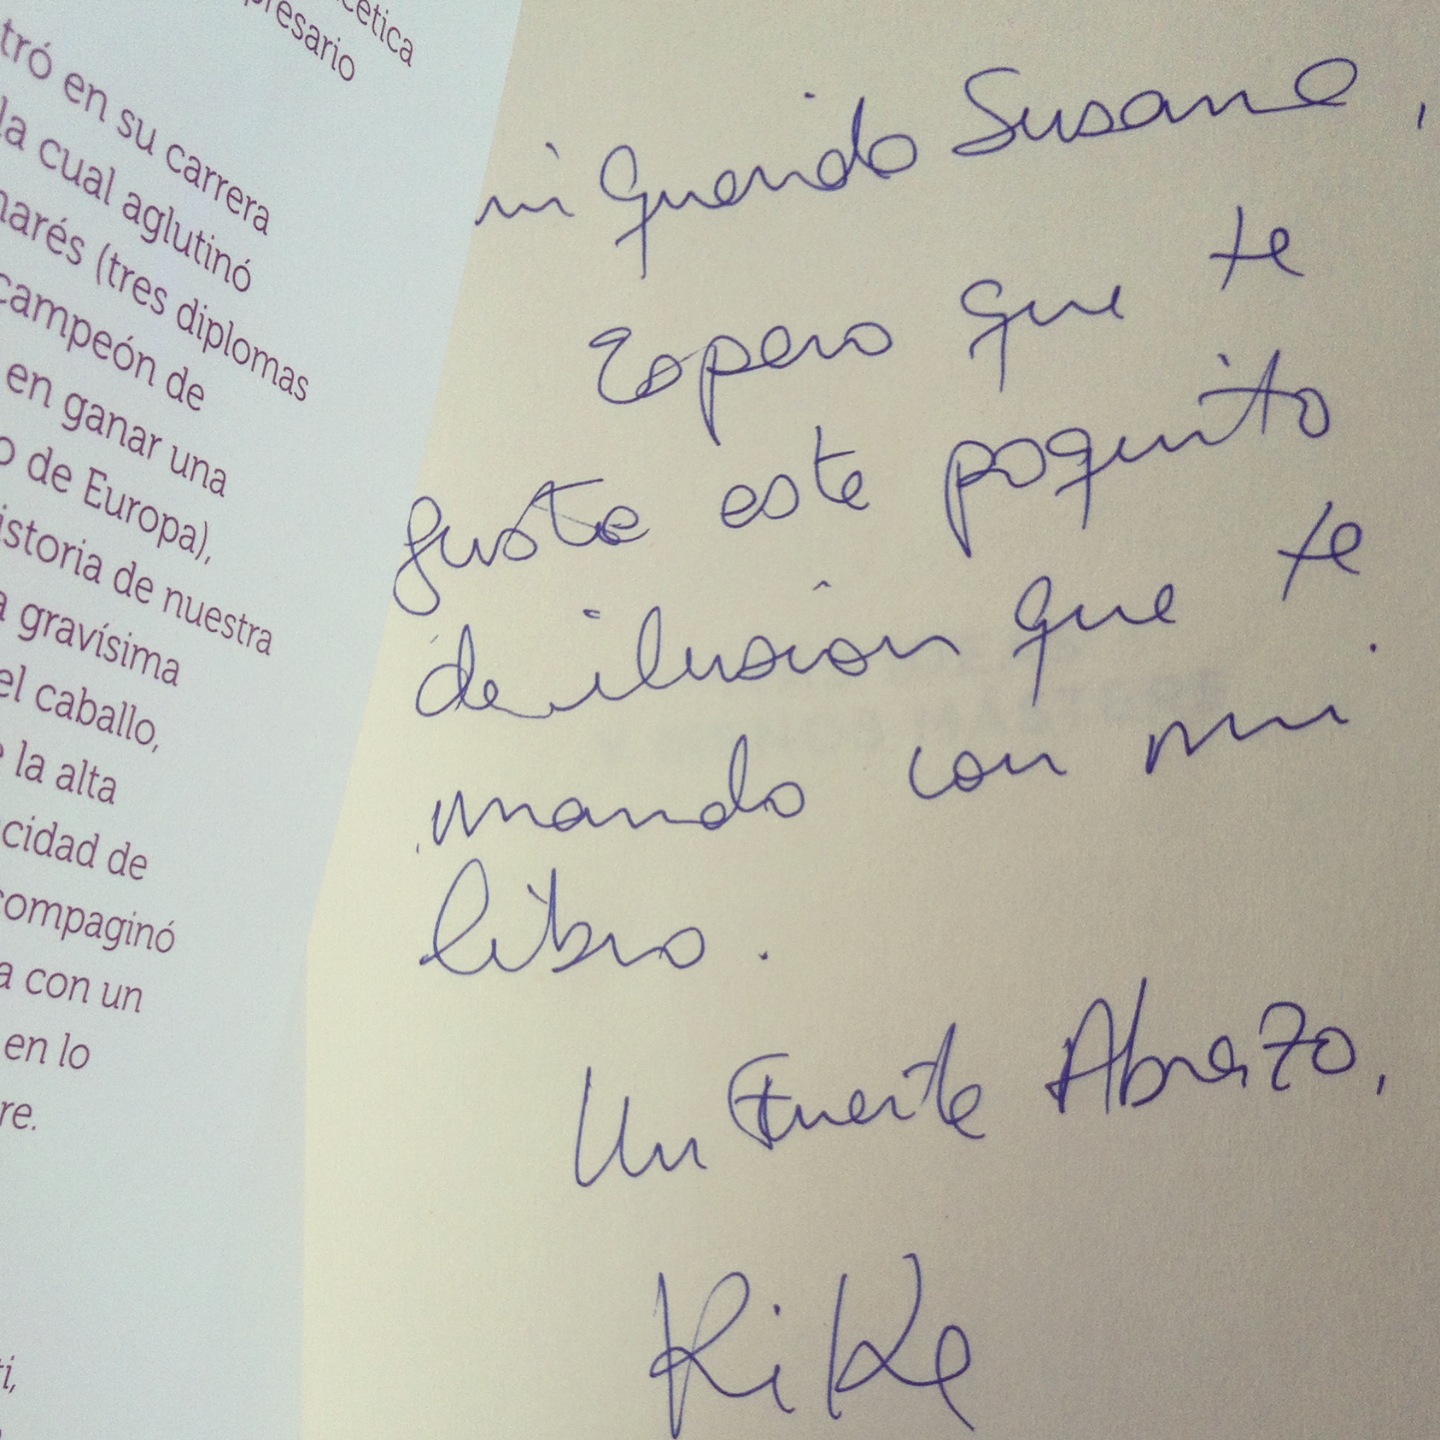 cética
presario
tró en su carrera
la cual aglutinó
marés (tres diplomas
campeón de
en ganar una
o de Europa),
istoria de nuestra
a gravísima
el caballo,
e la alta
cidad de
compaginó
a con un
en lo
re.
ti,
mi Querido Susana,
Espero que te
guste este poquito
de ilusion que te
mando con mi
libro.
Un Fuerte Abrazo,
KiKe